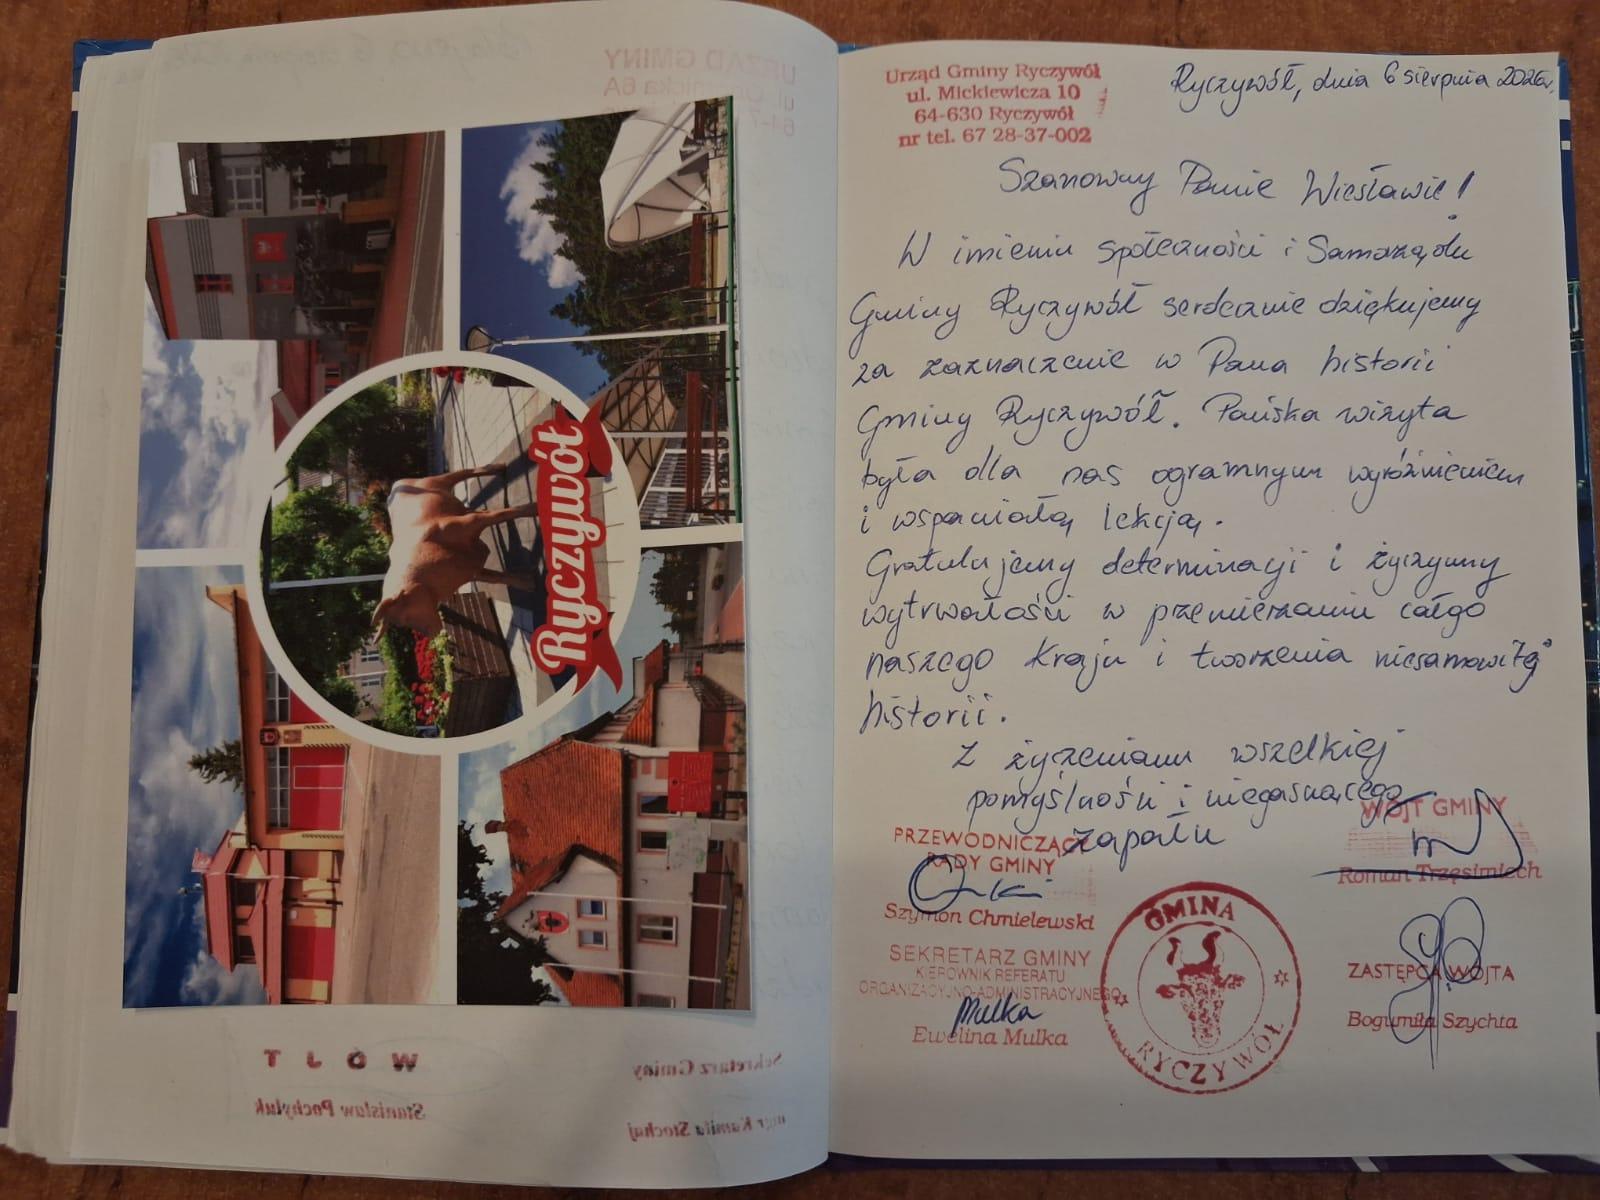 Ryczywół
URZĄD GMINY
WÓJT
Stanisław Pochyluk
Sekretarz Gminy
mgr Kamila Stochaj
Urząd Gminy Ryczywół
ul. Mickiewicza 10
64-630 Ryczywół
nr tel. 67 28-37-002
Ryczywół, dnia 6 sierpnia 2026r.
Szanowny Panie Wiesławie!
W imieniu społeczności i Samorządu
Gminy Ryczywół serdecznie dziękujemy
za zaznaczenie w Pana historii
Gminy Ryczywół. Pańska wizyta
była dla nas ogromnym wyróżnieniem
i wspaniałą lekcją.
Gratulujemy determinacji i życzymy
wytrwałości w przemierzaniu całego
naszego Kraju i tworzenia niesamowitej
historii.
Z życzeniami wszelkiej
pomyślności i niegasnącego
zapału
PRZEWODNICZĄCY
RADY GMINY
Szymon Chmielewski
WÓJT GMINY
Roman Trzęsimiech
SEKRETARZ GMINY
KIEROWNIK REFERATU
ORGANIZACYJNO-ADMINISTRACYJNEGO
Mulka
Ewelina Mulka
GMINA
RYCZYWÓŁ
ZASTĘPCA WÓJTA
Bogumiła Szychta